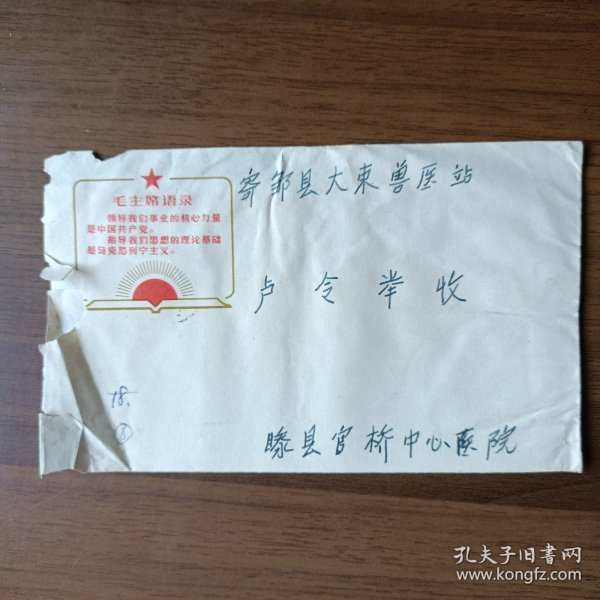 毛主席语录
领导我们事业的核心力量
是中国共产党。
指导我们思想的理论基础
是马克思列宁主义。
寄邹县大束兽医站
卢令举收
78.
1
滕县官桥中心医院
孔夫子旧书网
www.kongfz.com